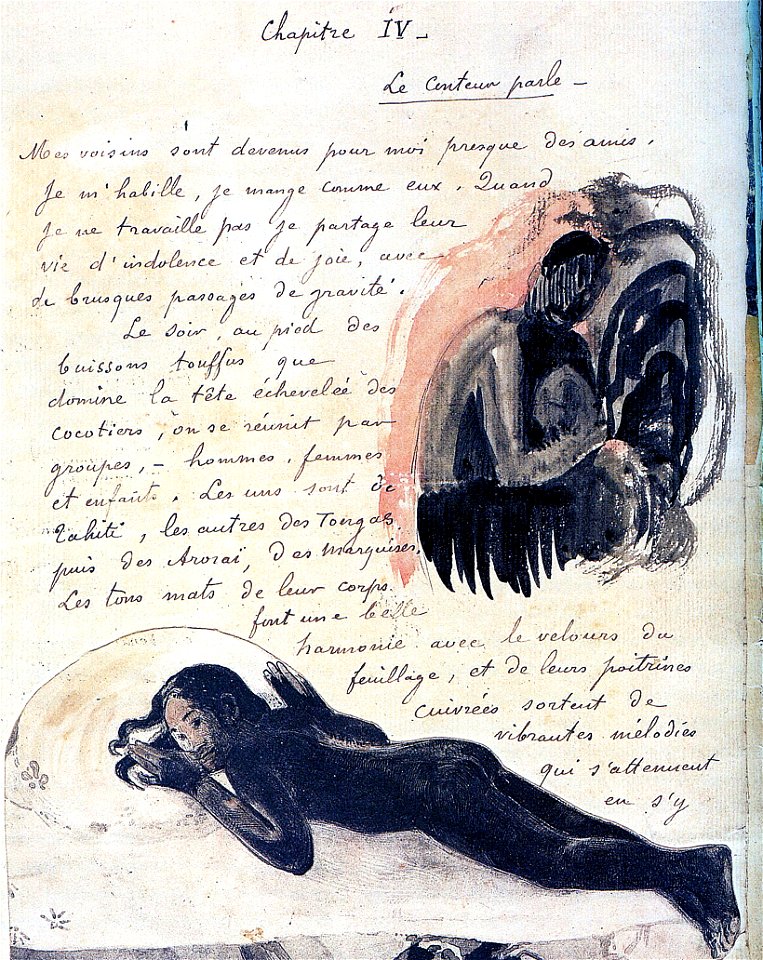 Chapitre IV_
Le Conteur parle_
Mes voisins sont devenus pour moi presque des amis.
Je m'habille, je mange comme eux. Quand
je ne travaille pas je partage leur
vie d'indolence et de joie, avec
de brusques passages de gravité.
Le soir, au pied des
buissons touffus que
domine la tête échevelée des
cocotiers, on se réunit par
groupes, - hommes, femmes
et enfants. Les uns sont de
Tahiti, les autres des Tongas,
puis des Arorai, des Marquises.
Les tons mats de leur corps
font une belle
harmonie avec le velours du
feuillage, et de leurs poitrines
cuivrées sortent de
vibrantes mélodies
qui s'attenuent
en s'y